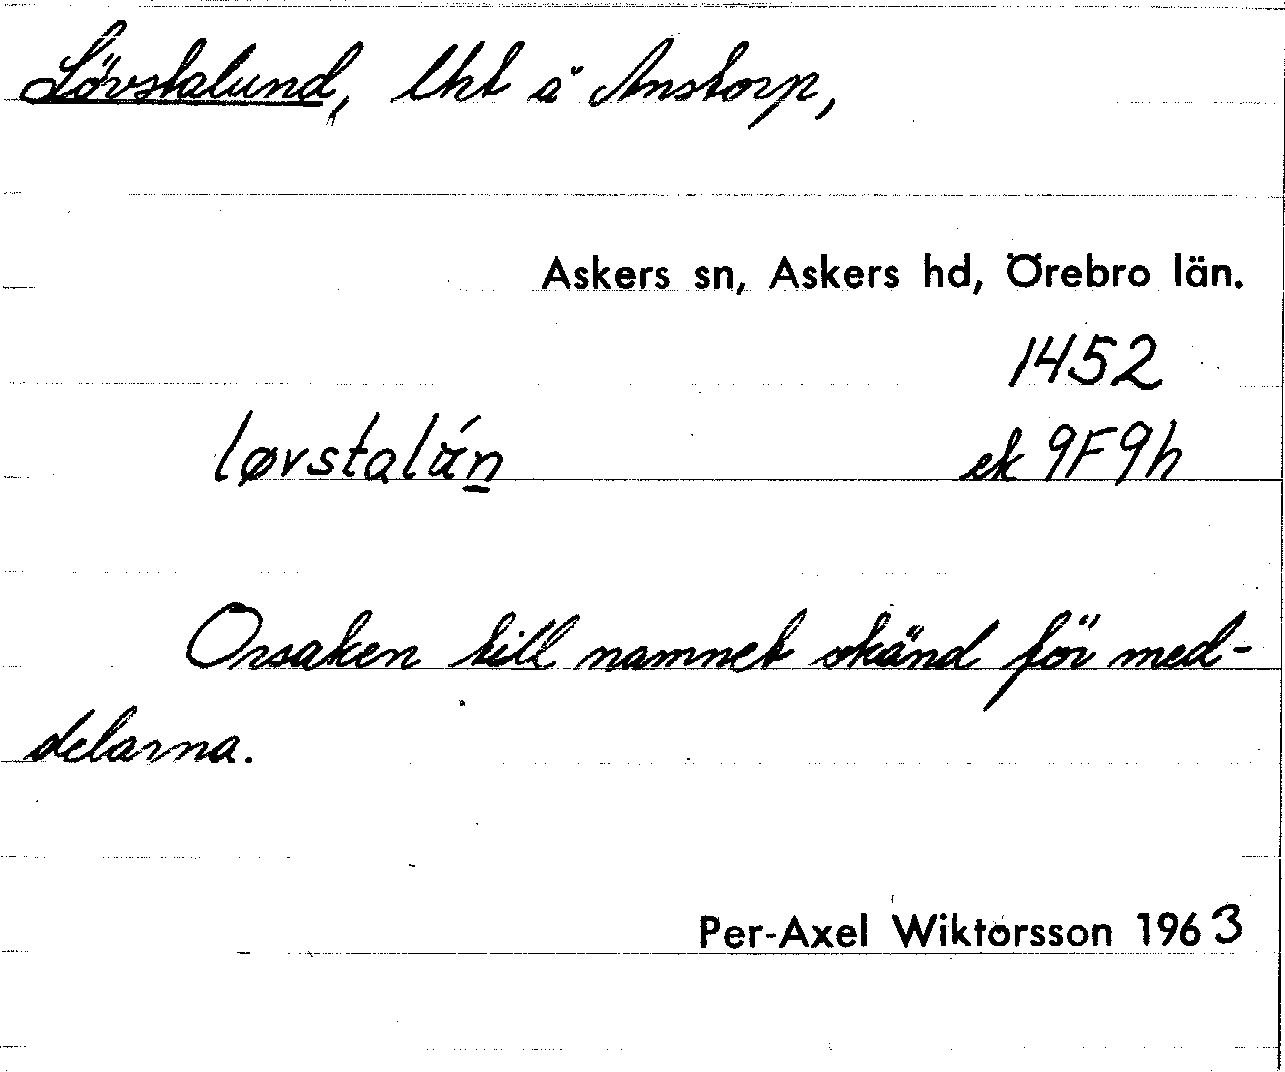 Lövstalund, lht å Anstorp,
Askers sn, Askers hd, Örebro län.
1452
løvstalún ek 9F9h
Orsaken till namnet okänd för med-
delarna.
Per-Axel Wiktorsson 1963